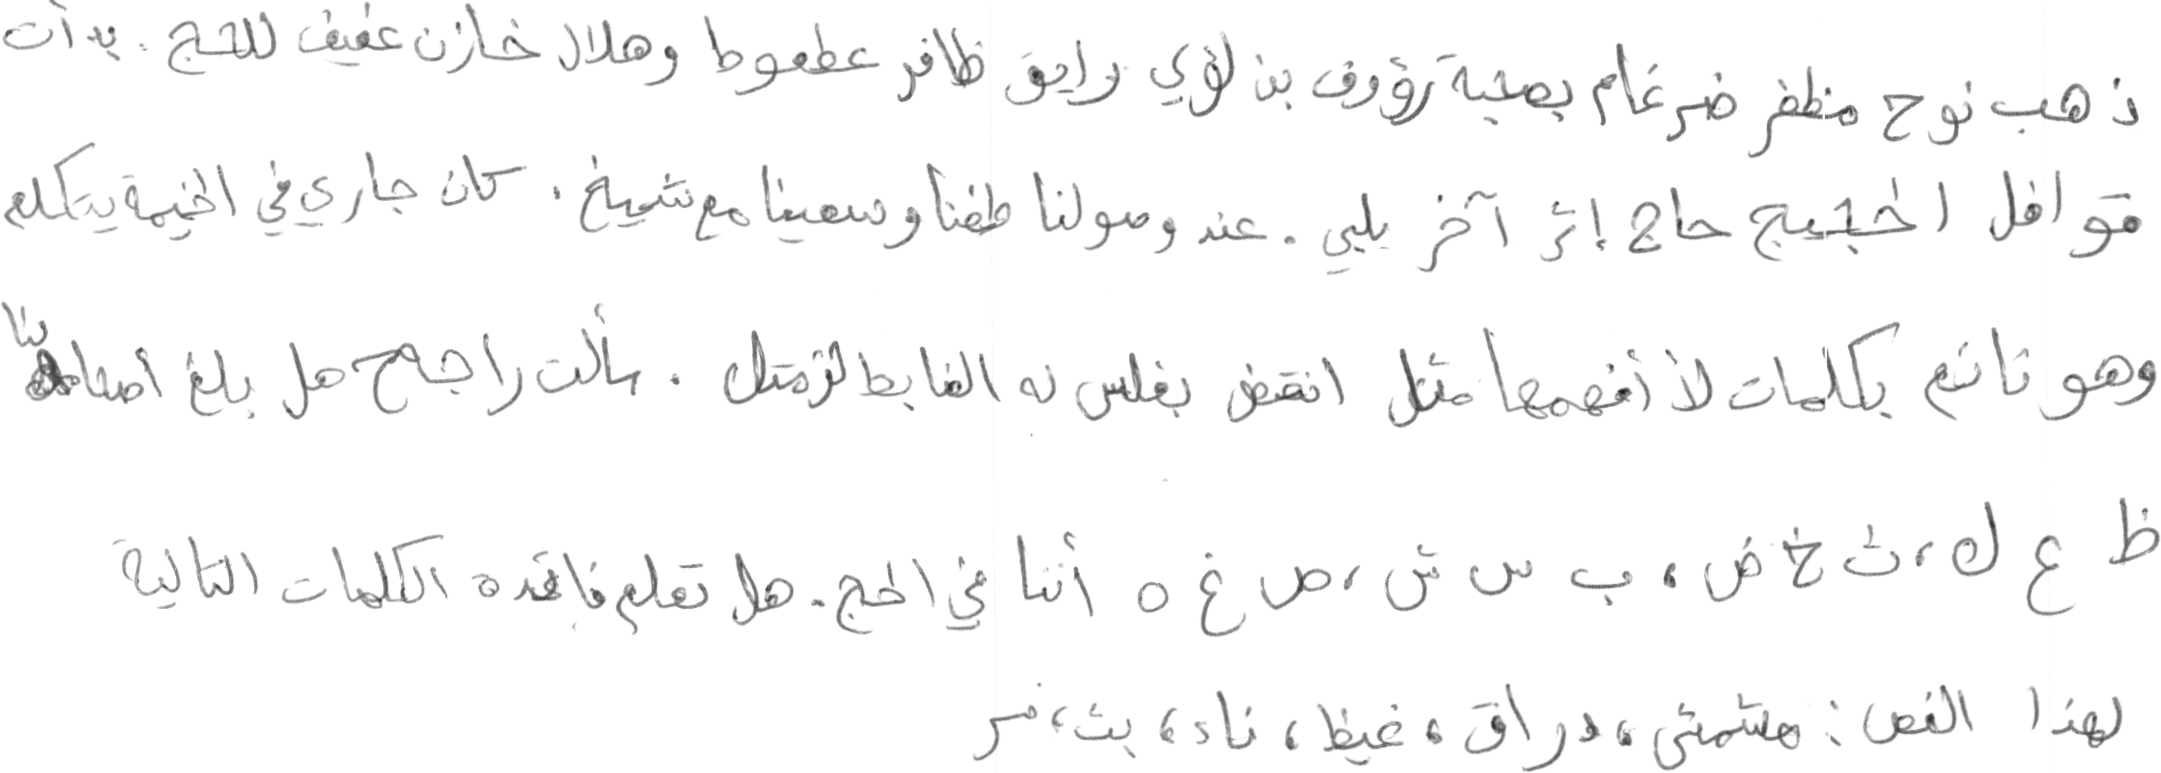 ذهب نوح مظفر ضرغام بصحبة رؤوف بن لؤي رايق ظافر عطعوط وهلال خازن عفيف للحج. بدأت
قوافل الحجيج حاج إثر آخر يلبي. عند وصولنا طفنا وسعينا مع شيخ. كان جاري في الخيمة يتكلم
وهو نائم بكلمات لا أفهمها مثل انقض بغلس نه الضابط لزمتك. سألت راجح هل بلغ أصحابنا
ظ ع ك، ث خ ض، ب س ش، ص غ ه أننا في الحج. هل تعلم فائدة الكلمات التالية
لهذا النص: مشمش، دراق، غيظ، ناء، بث، مر